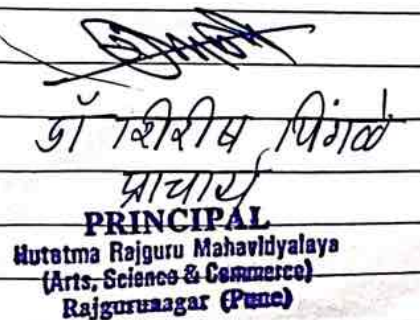 डॉ शिरीष पिंगळे
प्राचार्य
PRINCIPAL
Hutatma Rajguru Mahavidyalaya
(Arts, Science & Commerce)
Rajgurunagar (Pune)